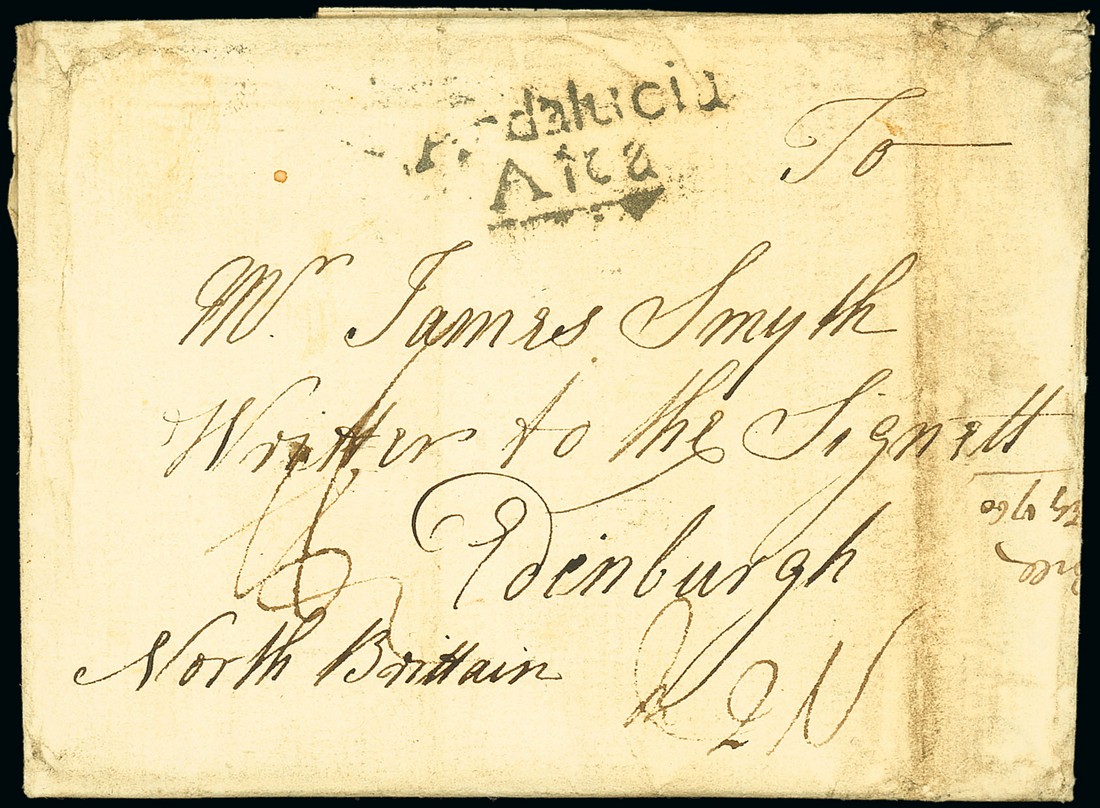 Andalucia
Alta
To
Mr James Smyth
Writter to the Signett
Edinburgh
North Brittain
1760